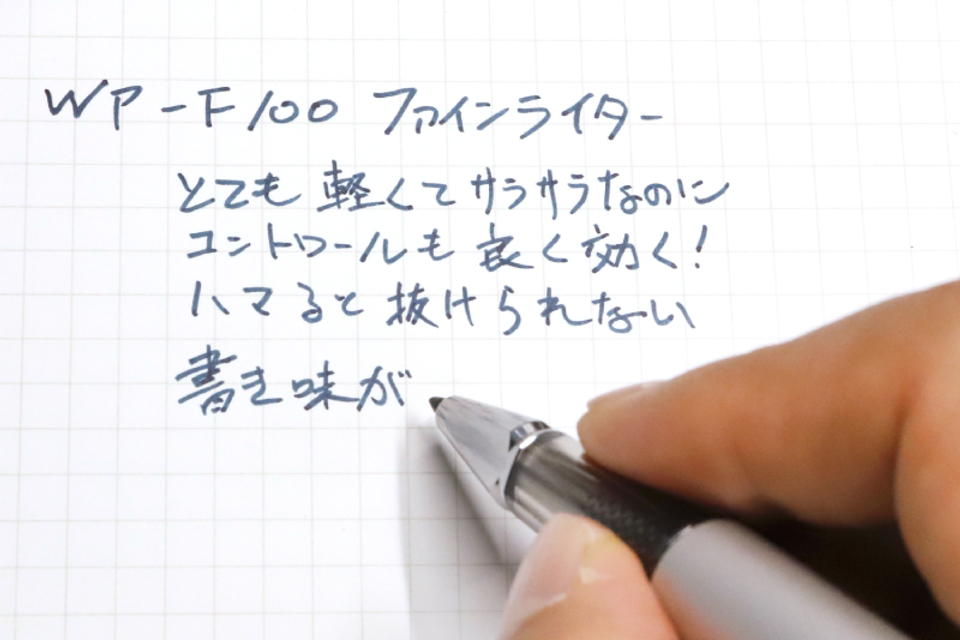 WP-F100 ファインライター
とても軽くてサラサラなのに
コントロールも良く効く!
ハマると抜けられない
書き味が